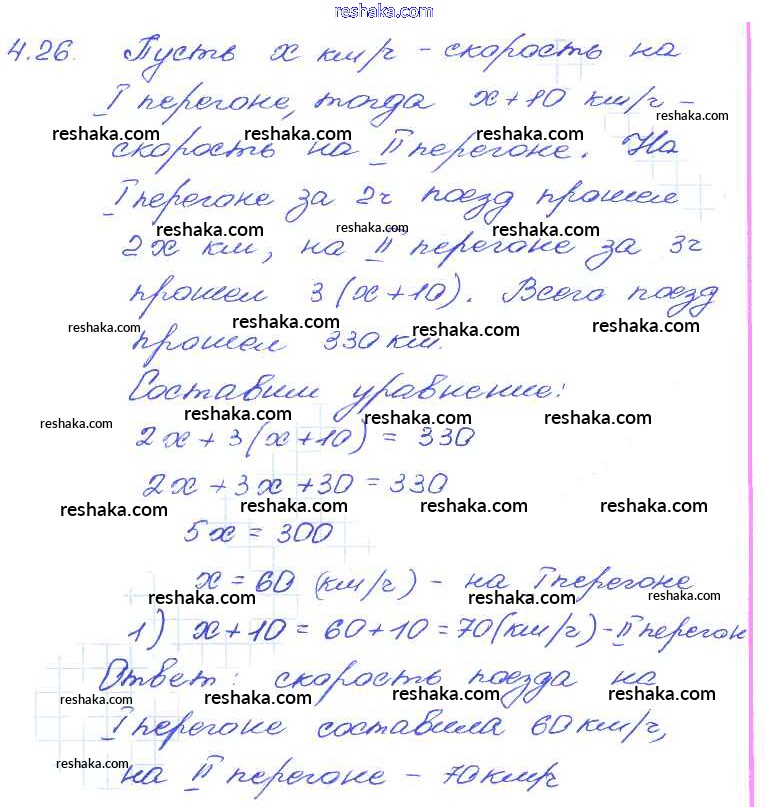 reshaka.com
4.26. Пусть x км/ч - скорость на
I перегоне, тогда x+10 км/ч -
reshaka.com
reshaka.com reshaka.com reshaka.com
скорость на II перегоне. На
I перегоне за 2ч поезд прошел
reshaka.com reshaka.com reshaka.com
2x км, на II перегоне за 3ч
прошел 3(x+10). Всего поезд
reshaka.com reshaka.com reshaka.com reshaka.com
прошел 330 км.
Составим уравнение:
reshaka.com reshaka.com reshaka.com reshaka.com
2x + 3(x+10) = 330
2x + 3x + 30 = 330
reshaka.com reshaka.com reshaka.com reshaka.com
5x = 300
x = 60 (км/ч) - на I перегоне
reshaka.com reshaka.com reshaka.com reshaka.com
1) x+10 = 60+10 = 70(км/ч) - II перегон
Ответ: скорость поезда на
reshaka.com reshaka.com reshaka.com reshaka.com
I перегоне составила 60 км/ч,
reshaka.com reshaka.com reshaka.com reshaka.com
на II перегоне - 70 км/ч
reshaka.com reshaka.com reshaka.com reshaka.com